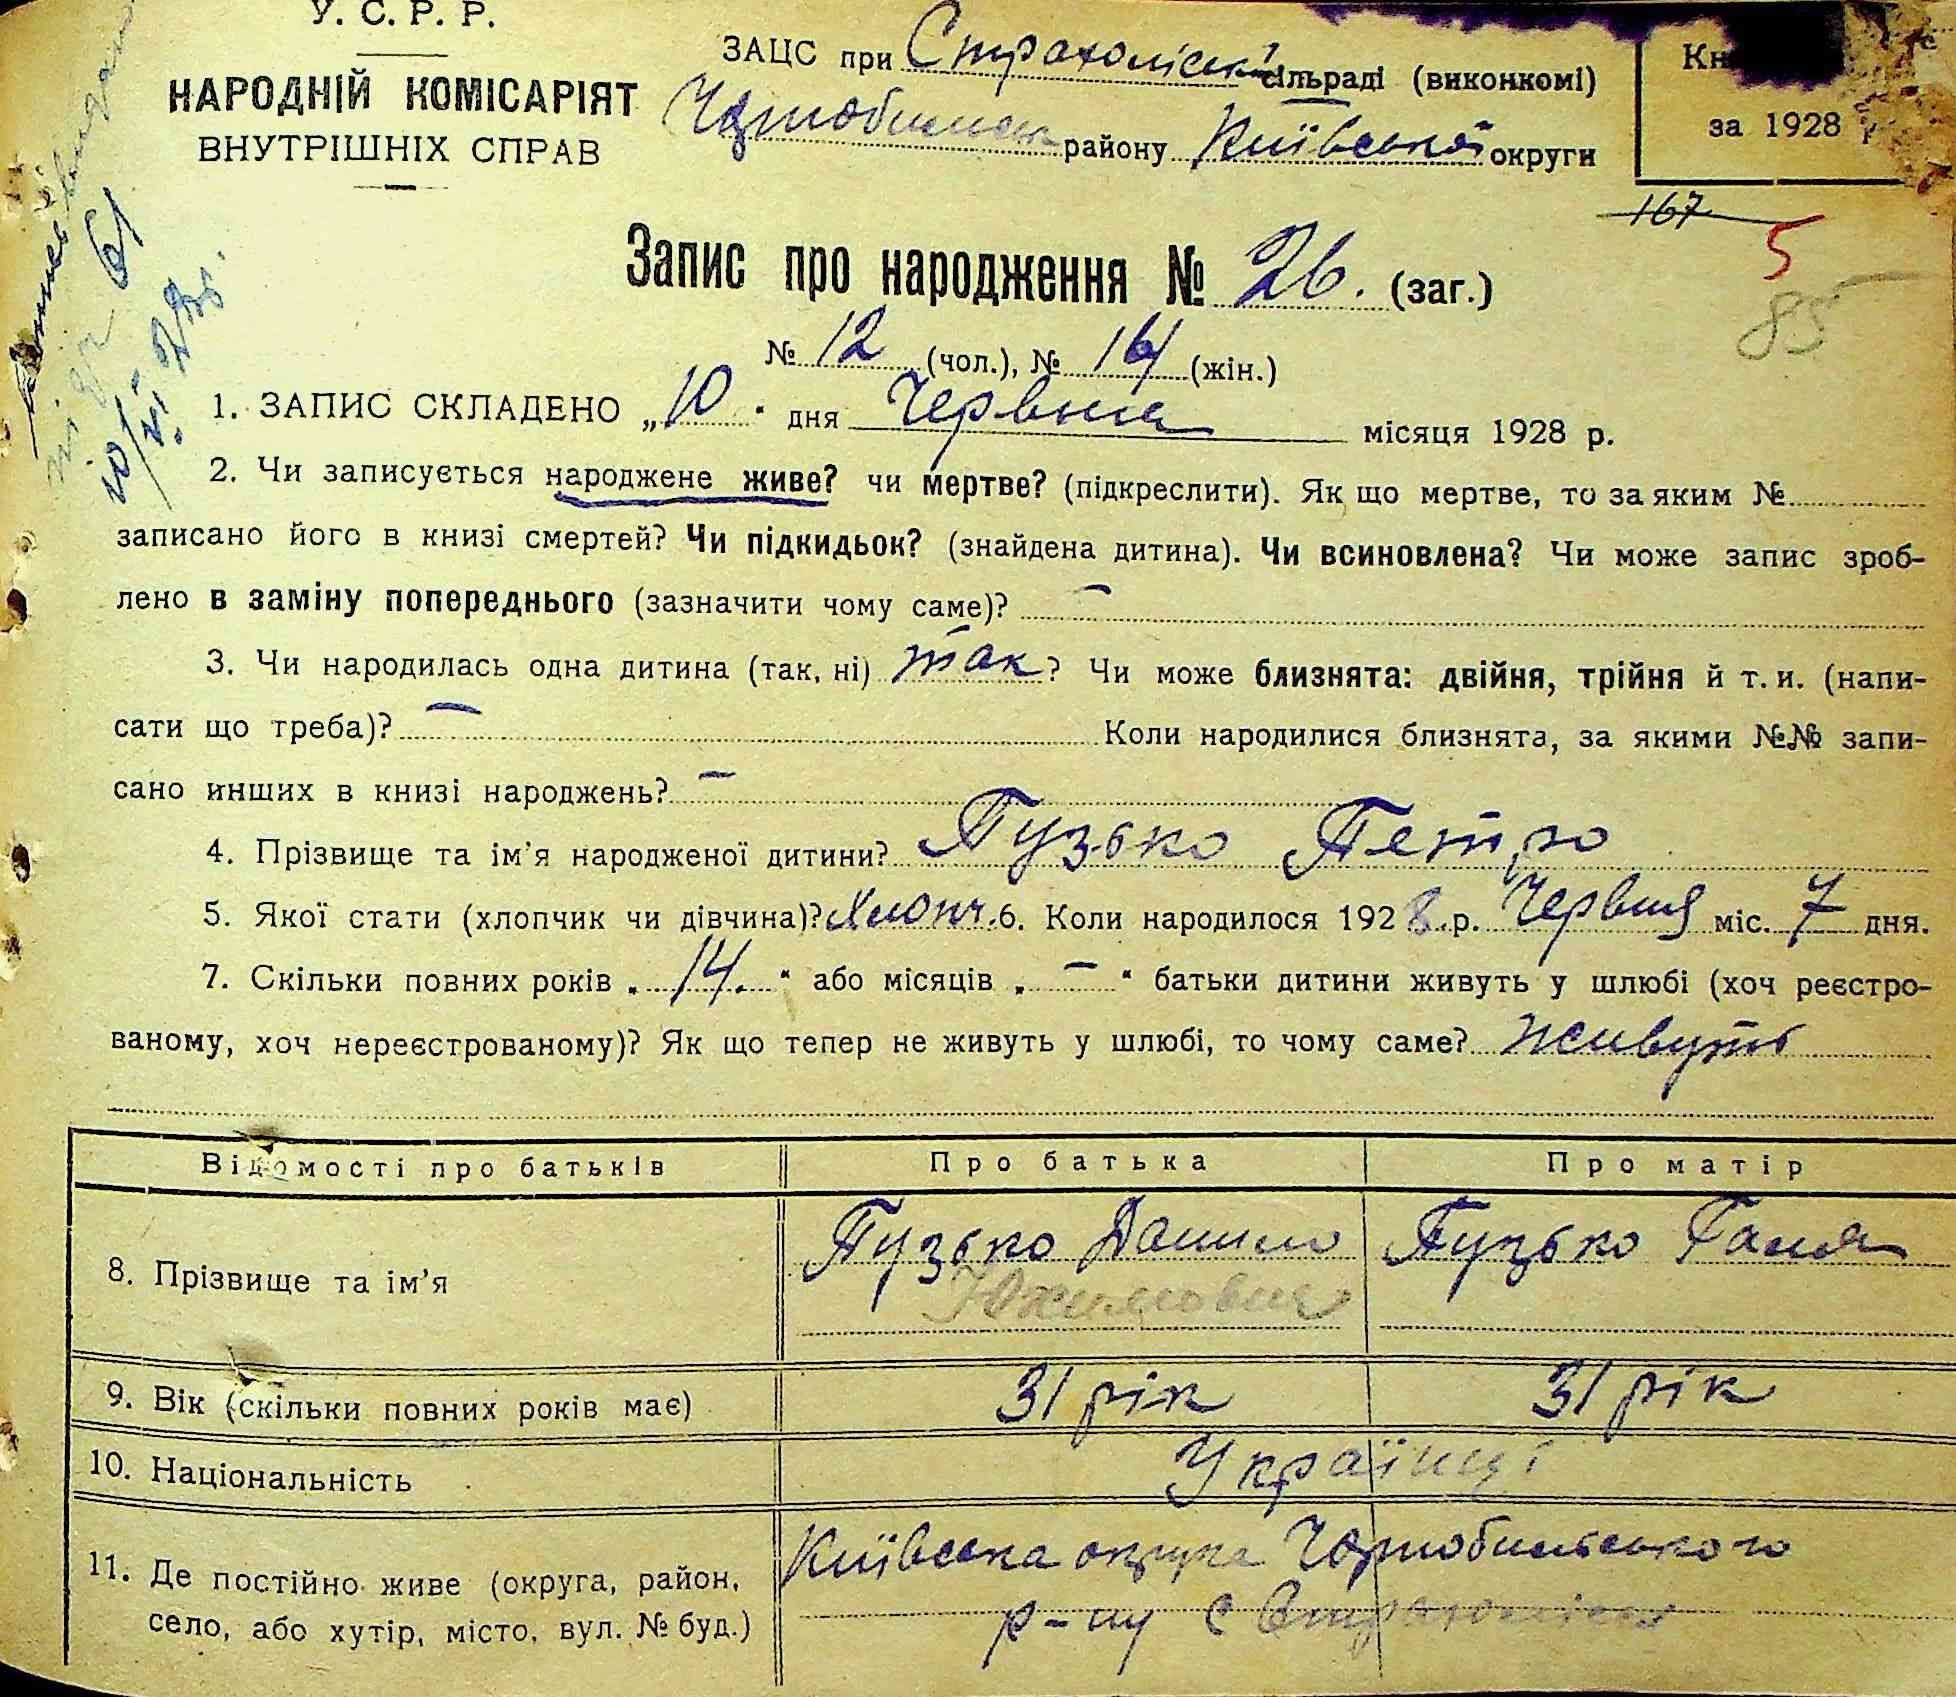 У. С. Р. Р.
НАРОДНІЙ КОМІСАРІЯТ
ВНУТРІШНІХ СПРАВ
ЗАЦС при Страхоліськ. сільраді (виконкомі)
Чорнобильськ району Київської округи
Кн
за 1928 р
167
5
85
Запис про народження № 26. (заг.)
№ 12 (чол.), № 14 (жін.)
1. ЗАПИС СКЛАДЕНО „10" дня Червня місяця 1928 р.
2. Чи записується народжене живе? чи мертве? (підкреслити). Як що мертве, то за яким №
записано його в книзі смертей? Чи підкидьок? (знайдена дитина). Чи всиновлена? Чи може запис зроб-
лено в заміну попереднього (зазначити чому саме)? —
3. Чи народилась одна дитина (так, ні) так? Чи може близнята: двійня, трійня й т. и. (напи-
сати що треба)? — Коли народилися близнята, за якими №№ запи-
сано инших в книзі народжень? —
4. Прізвище та ім'я народженої дитини? Пузько Петро
5. Якої стати (хлопчик чи дівчина)? Хлопч. 6. Коли народилося 1928 р. Червня міс. 7 дня.
7. Скільки повних років „14." або місяців „—" батьки дитини живуть у шлюбі (хоч реєстро-
ваному, хоч нереєстрованому)? Як що тепер не живуть у шлюбі, то чому саме? живуть
Відомості про батьків Про батька Про матір
8. Прізвище та ім'я Пузько Данило Юхимович Пузько Ганя
9. Вік (скільки повних років має) 31 рік 31 рік
10. Національність Українці
11. Де постійно живе (округа, район, Київська округа Чорнобильського
село, або хутір, місто, вул. № буд.) р-ну с Страхолісся